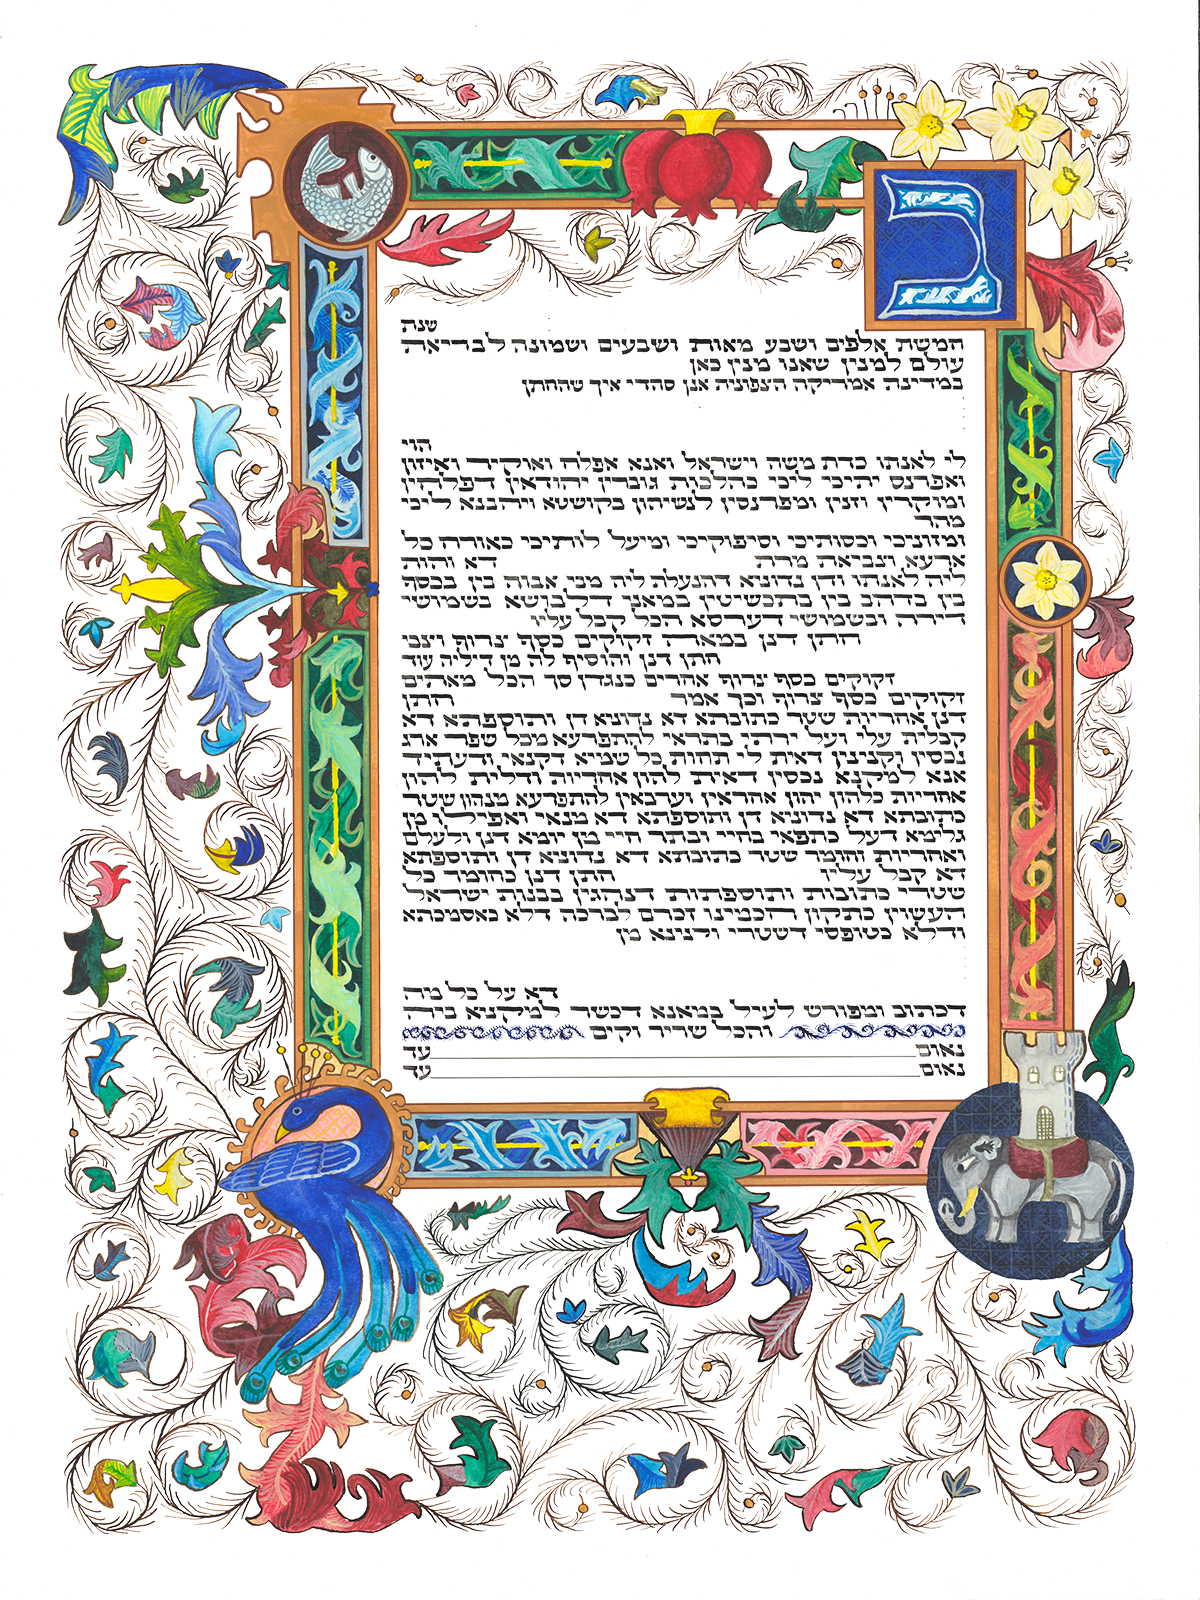 ב
שנה
חמשת אלפים ושבע מאות ושבעים ושמונה לבריאת
עולם למנין שאנו מנין כאן
במדינת אמריקה הצפונית אנן סהדי איך שהחתן
הוי
לי לאנתו כדת משה וישראל ואנא אפלח ואוקיר ואיזון
ואפרנס יתיכי ליכי כהלכות גוברין יהודאין דפלחין
ומוקרין וזנין ומפרנסין לנשיהון בקושטא ויהבנא ליכי
מהר
ומזוניכי וכסותיכי וסיפוקיכי ומיעל לותיכי כאורח כל
ארעא וצביאת מרת דא והות
ליה לאנתו ודן נדוניא דהנעלת ליה מבי אבוה בין בכסף
בין בדהב בין בתכשיטין במאני דלבושא בשמושי
דירה ובשמושי דערסא הכל קבל עליו
חתן דנן במאה זקוקים כסף צרוף וצבי
חתן דנן והוסיף לה מן דיליה עד
זקוקים כסף צרוף אחרים כנגדן סך הכל מאתים
זקוקים כסף צרוף וכך אמר חתן
דנן אחריות שטר כתובתא דא נדוניא דן ותוספתא דא
קבלית עלי ועל ירתי בתראי להתפרעא מכל שפר ארג
נכסין וקנינין דאית לי תחות כל שמיא דקנאי ודעתיד
אנא למקנא נכסין דאית להון אחריות ודלית להון
אחריות כלהון יהון אחראין וערבאין להתפרעא מנהון שטר
כתובתא דא נדוניא דן ותוספתא דא מנאי ואפילו מן
גלימא דעל כתפאי בחיי ובתר חיי מן יומא דנן ולעלם
ואחריות וחומר שטר כתובתא דא נדוניא דן ותוספתא
דא קבל עליו חתן דנן כחומר כל
שטרי כתובות ותוספתות דנהגין בבנות ישראל
העשוין כתקון חכמינו זכרם לברכה דלא כאסמכתא
ודלא כטופסי דשטרי וקנינא מן
דא על כל מה
דכתוב ומפורש לעיל במאנא דכשר למקניא ביה
והכל שריר וקים
נאום עד
נאום עד